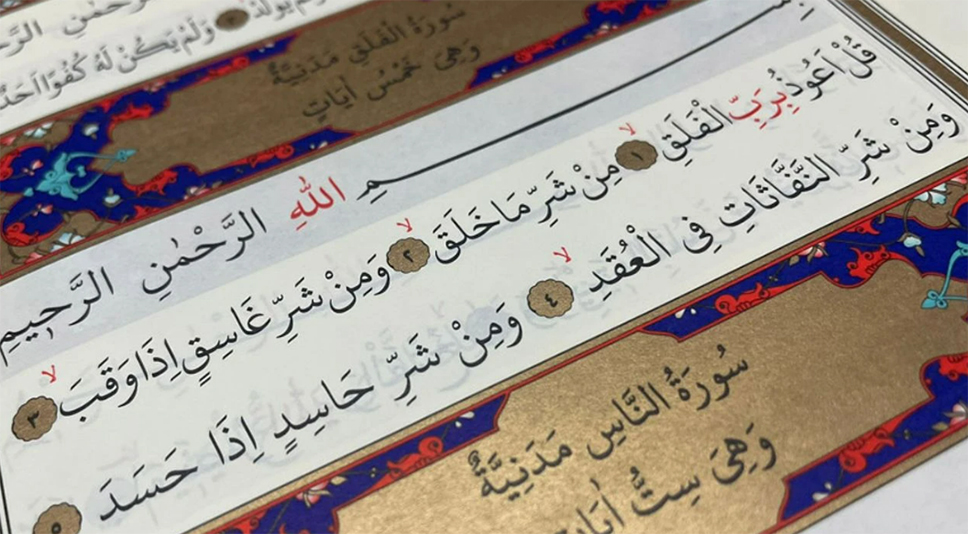 وَلَمْ يَكُنْ لَهُ كُفُوًا اَحَدٌ
سُورَةُ الْفَلَقِ مَدَنِيَّةٌ
وَهِىَ خَمْسُ اٰيَاتٍ
بِسْمِ اللّٰهِ الرَّحْمٰنِ الرَّحِيمِ
قُلْ اَعُوذُ بِرَبِّ الْفَلَقِ ﴿١﴾ مِنْ شَرِّ مَا خَلَقَ ﴿٢﴾ وَمِنْ شَرِّ غَاسِقٍ اِذَا وَقَبَ ﴿٣﴾
وَمِنْ شَرِّ النَّفَّاثَاتِ فِى الْعُقَدِ ﴿٤﴾ وَمِنْ شَرِّ حَاسِدٍ اِذَا حَسَدَ ﴿٥﴾
سُورَةُ النَّاسِ مَدَنِيَّةٌ
وَهِىَ سِتُّ اٰيَاتٍ